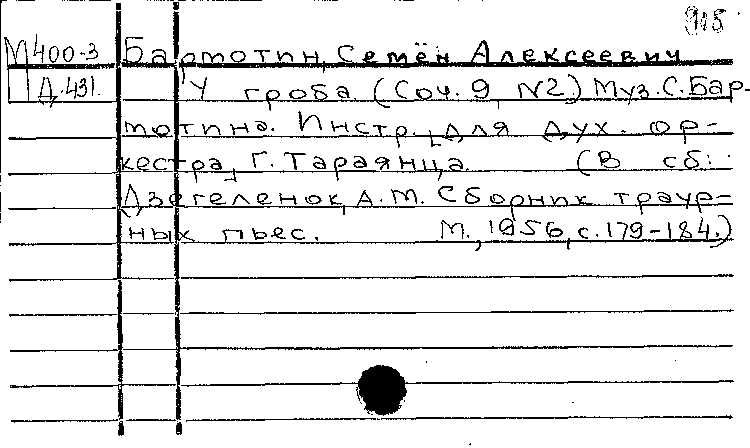 918
М400-3 Бармотин, Семён Алексеевич
Д.431. У гроба (Соч. 9, №2) Муз. С. Бар-
мотина. Инстр. [для дух. ор-
кестра] Г. Тараянца. (В сб.:
Дзегеленок, А. М. Сборник траур-
ных пьес. М., 1956, с. 179-184.)